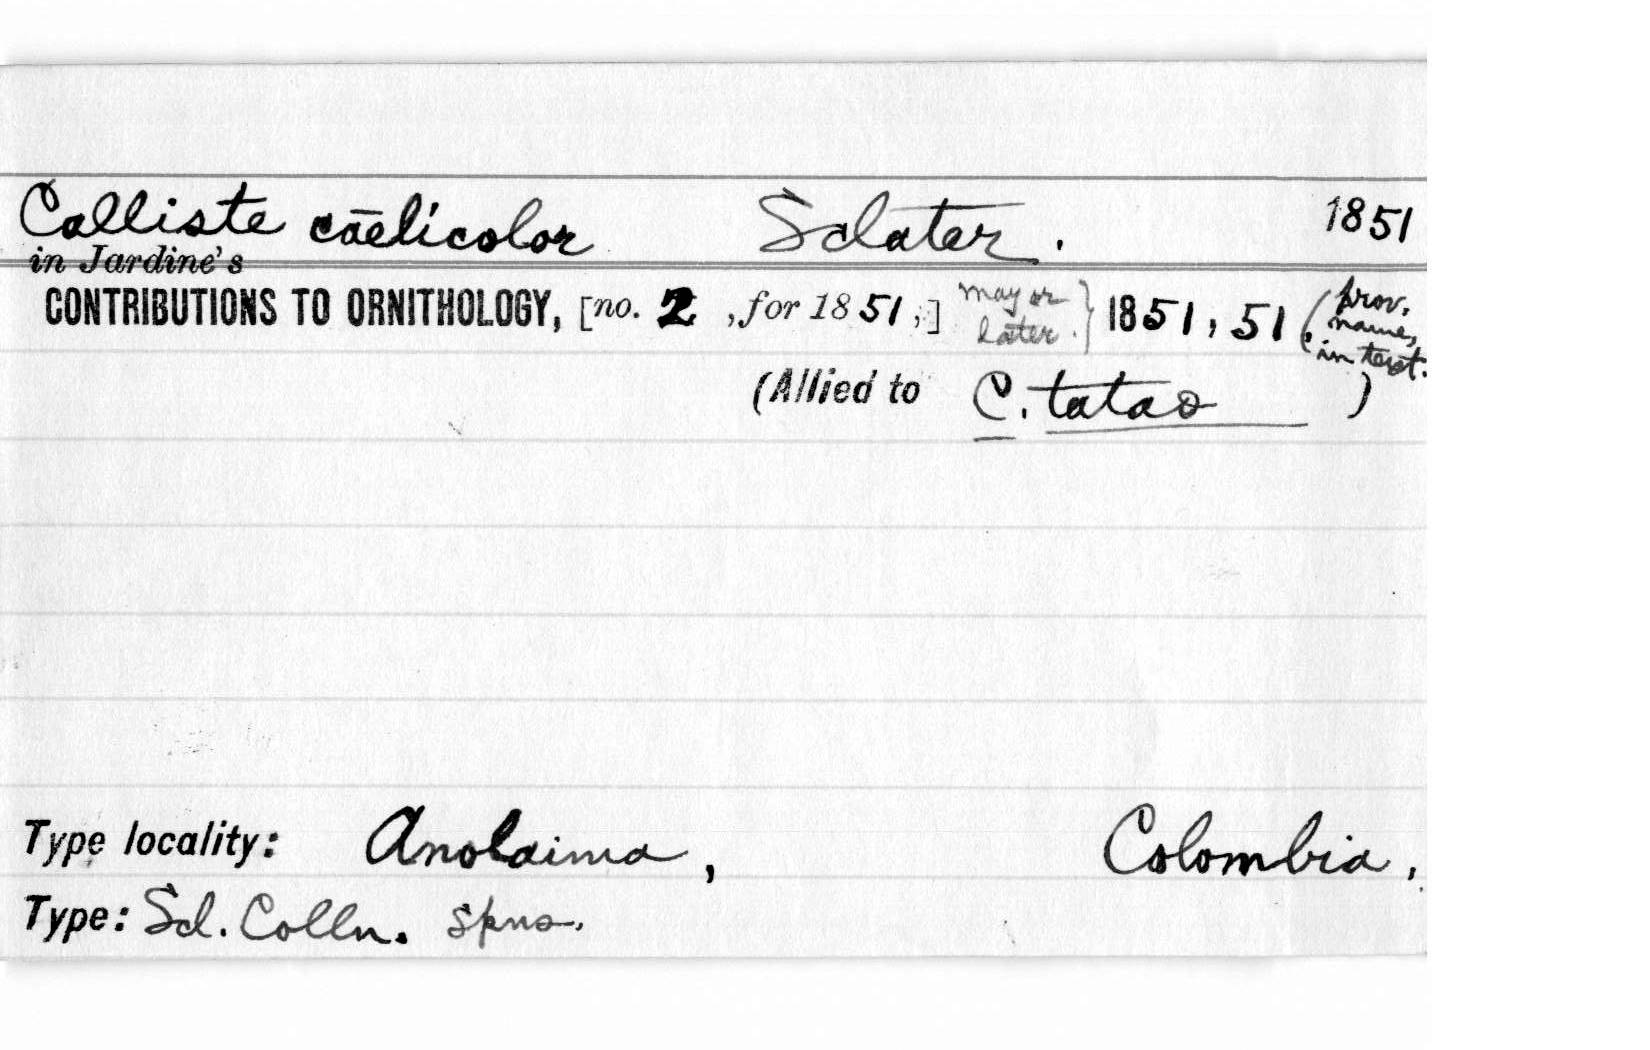 Calliste cāelicolor Sclater. 1851
in Jardine's
CONTRIBUTIONS TO ORNITHOLOGY, [no. 2, for 1851,] may or later.} 1851, 51. (prov. name, in text.
(Allied to C. tatao )
Type locality: Anolaima, Colombia,
Type: Scl. Colln. Spns.